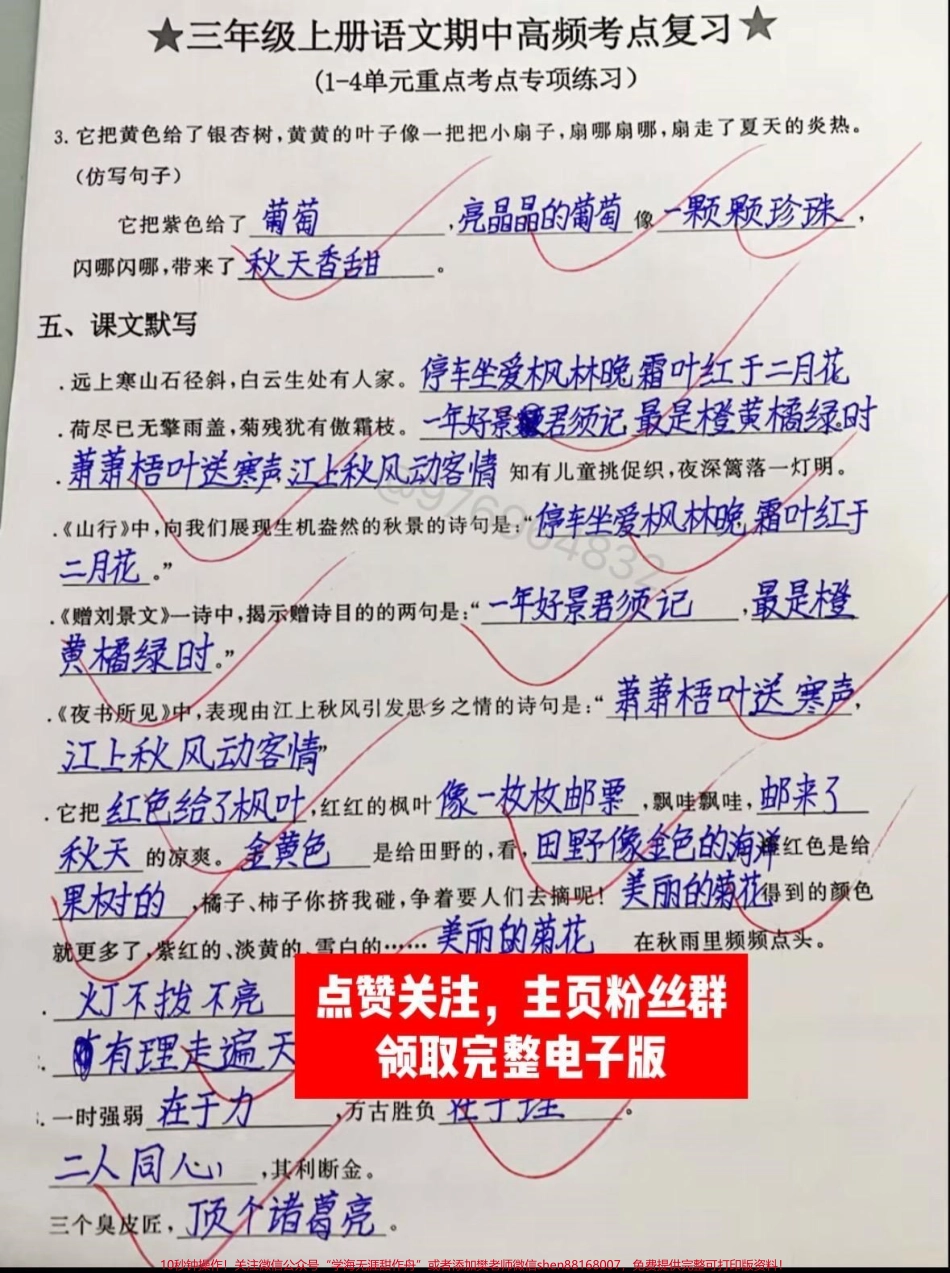 ★三年级上册语文期中高频考点复习★
(1-4单元重点考点专项练习)
3. 它把黄色给了银杏树,黄黄的叶子像一把把小扇子,扇哪扇哪,扇走了夏天的炎热。
(仿写句子)
它把紫色给了葡萄,亮晶晶的葡萄像一颗颗珍珠,
闪哪闪哪,带来了秋天香甜。
五、课文默写
.远上寒山石径斜,白云生处有人家。停车坐爱枫林晚霜叶红于二月花
.荷尽已无擎雨盖,菊残犹有傲霜枝。一年好景君须记 最是橙黄橘绿时
.萧萧梧叶送寒声江上秋风动客情 知有儿童挑促织,夜深篱落一灯明。
.《山行》中,向我们展现生机盎然的秋景的诗句是:“停车坐爱枫林晚,霜叶红于
二月花。”
.《赠刘景文》一诗中,揭示赠诗目的的两句是:“一年好景君须记,最是橙
黄橘绿时。”
.《夜书所见》中,表现由江上秋风引发思乡之情的诗句是:“萧萧梧叶送寒声,
江上秋风动客情”
.它把红色给了枫叶,红红的枫叶像一枚枚邮票,飘哇飘哇,邮来了
秋天的凉爽。金黄色是给田野的,看,田野像金色的海洋橙红色是给
果树的,橘子、柿子你挤我碰,争着要人们去摘呢!美丽的菊花得到的颜色
就更多了,紫红的、淡黄的、雪白的……美丽的菊花 在秋雨里频频点头。
.灯不拨不亮
有理走遍天
点赞关注，主页粉丝群
领取完整电子版
.一时强弱在于力,万古胜负在于理。
二人同心,其利断金。
三个臭皮匠,顶个诸葛亮。
@976864832
10秒钟操作！关注微信公众号“学海无涯甜作舟”或者添加樊老师微信shen88168007，免费提供完整可打印版资料！